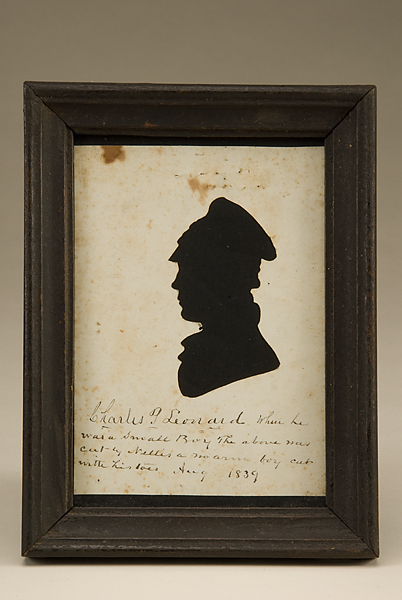 Charles P Leonard When he
was a Small Boy The above was
cut by Nellis a no arm boy cut
with his toes Aug 1839